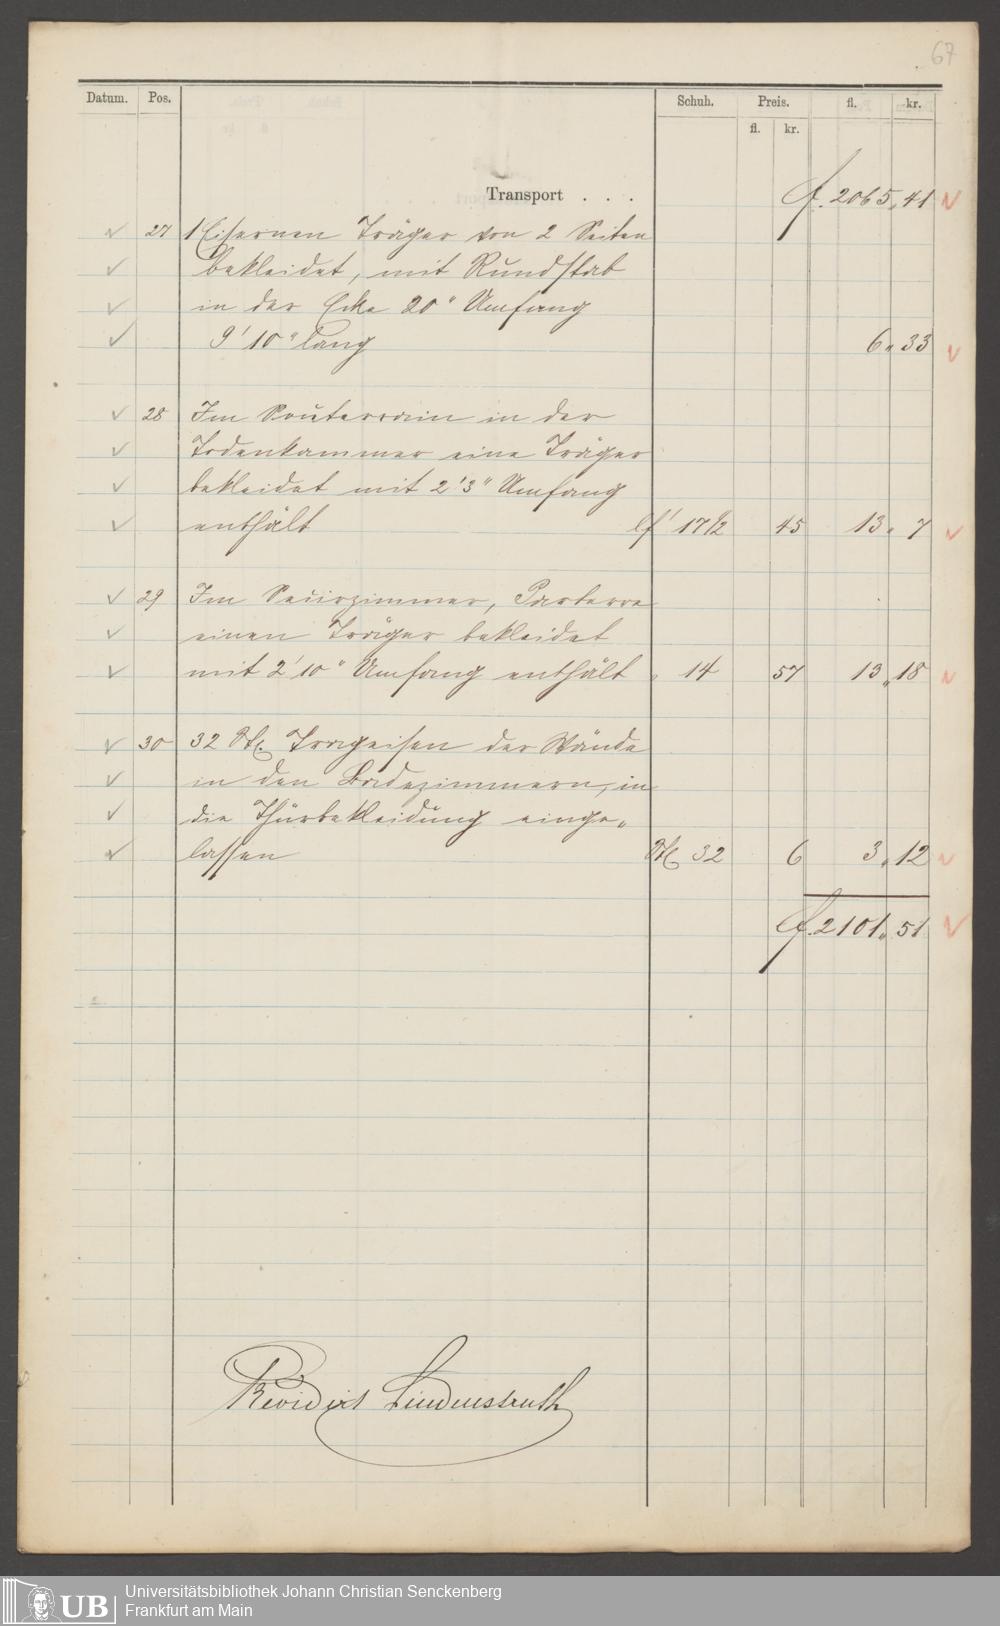 67
Datum. Pos. Schuh. Preis. fl. kr.
fl. kr.
Transport . . . f. 2065„ 41
27 1 Eisernen Träger von 2 Seiten
bekleidet, mit Rundstab
in der Ecke 20" Umfang
9' 10" lang 6„ 33
28 Im Souterrain in der
Todenkammer eine Träger
bekleidet mit 2' 3" Umfang
enthält lf' 17 1/2 45 13„ 7
29 Im Parterre
einen Träger bekleidet
mit 2' 10" Umfang enthält „ 14 57 13„ 18
30 32 Stk. Trageisen der Wände
in den Badezimmern, in
die Thürbekleidung einge„
lassen Stk 32 6 3„ 12
f. 2101„ 51
Revidirt Lindenstruth
UB Universitätsbibliothek Johann Christian Senckenberg
Frankfurt am Main